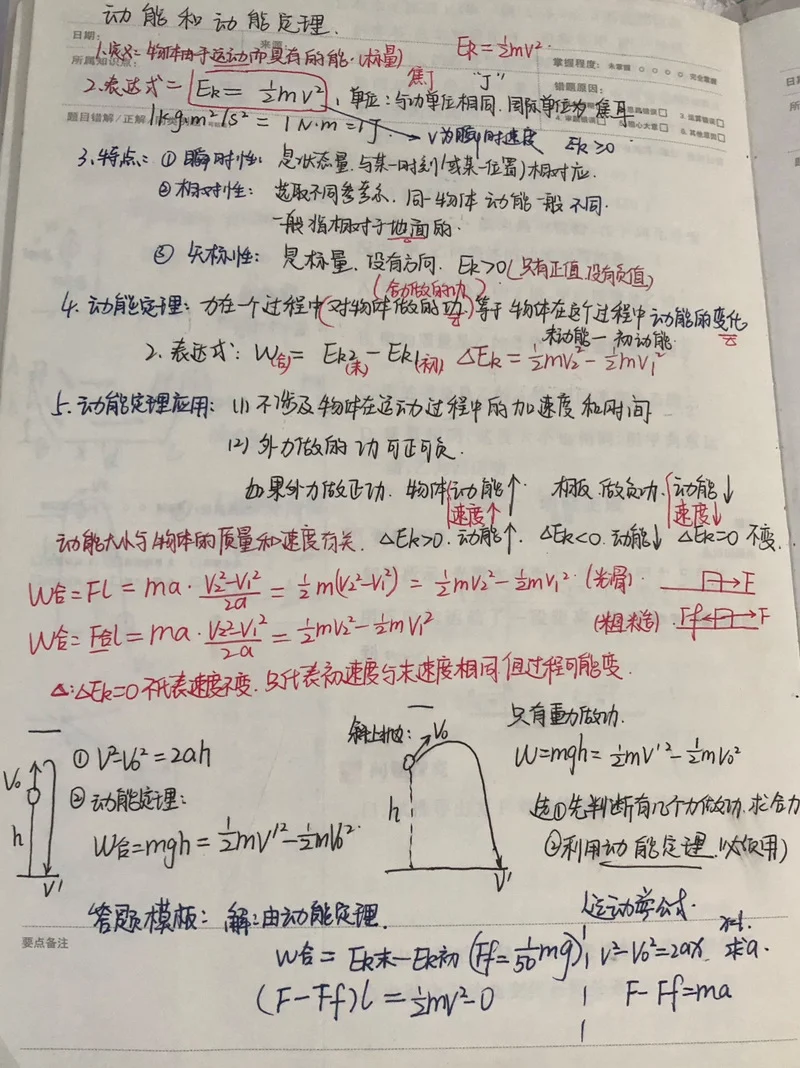 动能和动能定理.
日期:
来源:
1.定义: 物体由于运动而具有的能.(标量) Ek=½mv².
所属知识点:
掌握程度: 未掌握 ○ ○ ○ ○ 完全掌握
焦丁 "J"
2.表达式= Ek= ½mv², 单位:与功单位相同.国际单位为焦耳
错题原因:
题目错解/正解
1kg·m²/s² = 1N·m=1J.
v为瞬时速度 Ek≥0
3.特点: ① 瞬时性: 是状态量.与某一时刻(或某一位置)相对应.
② 相对性: 选取不同参考系.同一物体动能一般不同.
一般指相对于地面的.
③ 矢标性: 是标量.没有方向. Ek>0(只有正值.没有负值)
(合力做的功)
4.动能定理: 力在一个过程中(对物体做的功)等于物体在这个过程中动能的变化
末动能一初动能
2.表达式: W(合)= Ek2(末)-Ek1(初) ΔEk=½mv₂²-½mv₁²
5.动能定理应用: (1) 不涉及物体在运动过程中的加速度和时间
(2) 外力做的功可正可负.
如果外力做正功. 物体动能↑. 相反.做负功.动能↓
速度↑ 速度↓
动能大小与物体的质量和速度有关. ΔEk>0.动能↑. ΔEk<0.动能↓ ΔEk=0 不变.
W合=Fl=ma·(v₂²-v₁²)/2a=½m(v₂²-v₁²)=½mv₂²-½mv₁².(光滑). F
W合=F合l=ma·(v₂²-v₁²)/2a=½mv₂²-½mv₁² (粗糙). Ff F
Δ:ΔEk=0不代表速度不变.只代表初速度与末速度相同.但过程可能变.
只有重力做功.
斜上抛: V₀
W=mgh=½mv'²-½mv₀²
V₀ ① V²-V₀²=2ah
② 动能定理:
h
W合=mgh=½mv'²-½mv₀².
V'
h
V'
选①先判断有几个力做功.求合力
②利用动能定理.(使用)
答题模板: 解:由动能定理.
运动学公式.
要点备注
W合= Ek末-Ek初 (Ff=1/50mg) v²-v₀²=2ax. 求a.
(F-Ff)l=½mv²-0 F-Ff=ma